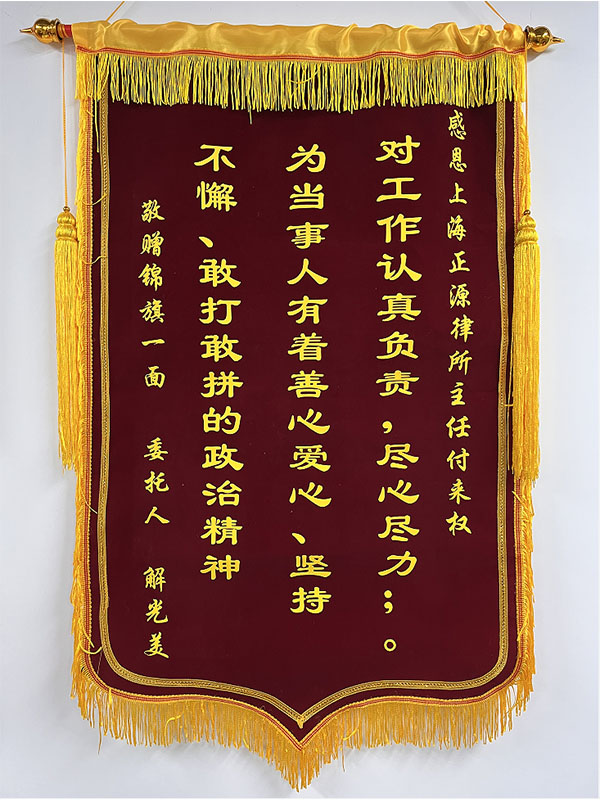 感恩上海正源律所主任付来权
对工作认真负责，尽心尽力；。
为当事人有着善心爱心、坚持
不懈、敢打敢拼的政治精神
敬赠锦旗一面 委托人 解光美